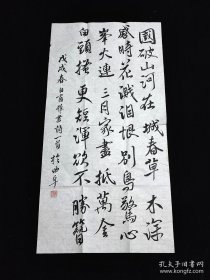 國破山河在城春草木深
感時花濺淚恨別鳥驚心
峯火連三月家書抵萬金
白頭搔更短渾欲不勝簪
戊戌春日詩一首於曲阜
孔夫子旧书网